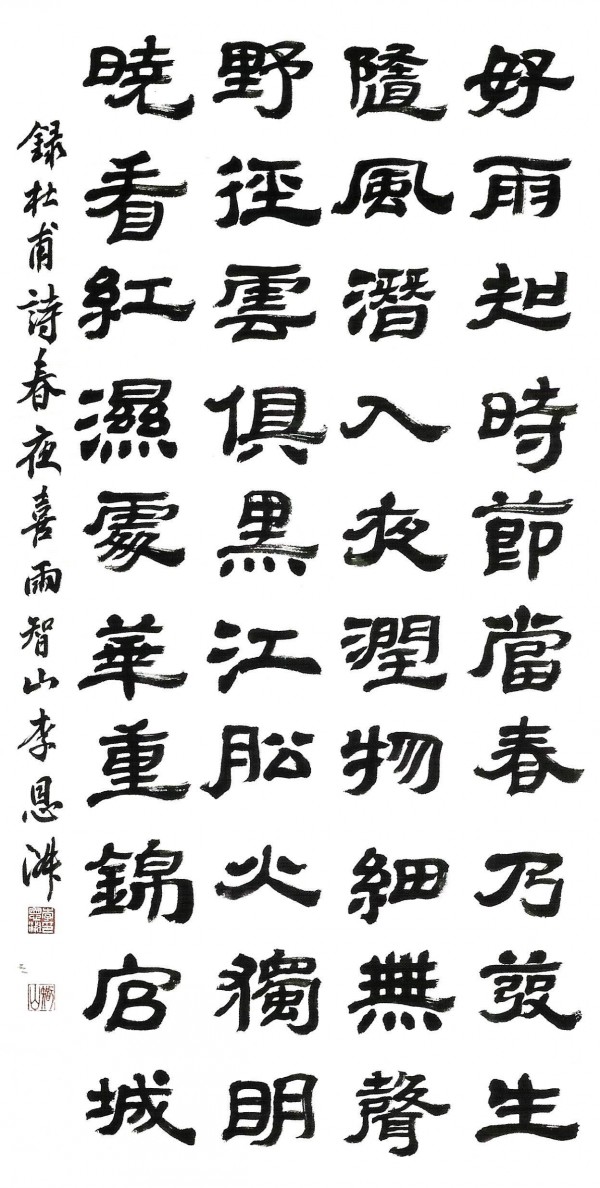 好雨知時節當春乃發生
隨風潛入夜潤物細無聲
野徑雲俱黑江船火獨明
曉看紅濕處華重錦官城
錄杜甫詩春夜喜雨智山李恩